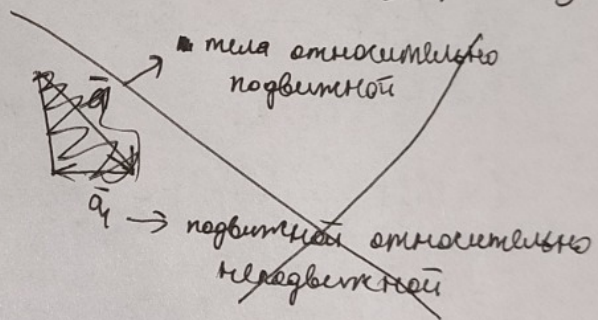 тела относительно
подвижной
ā
ā₁ → подвижной относительно
неподвижной